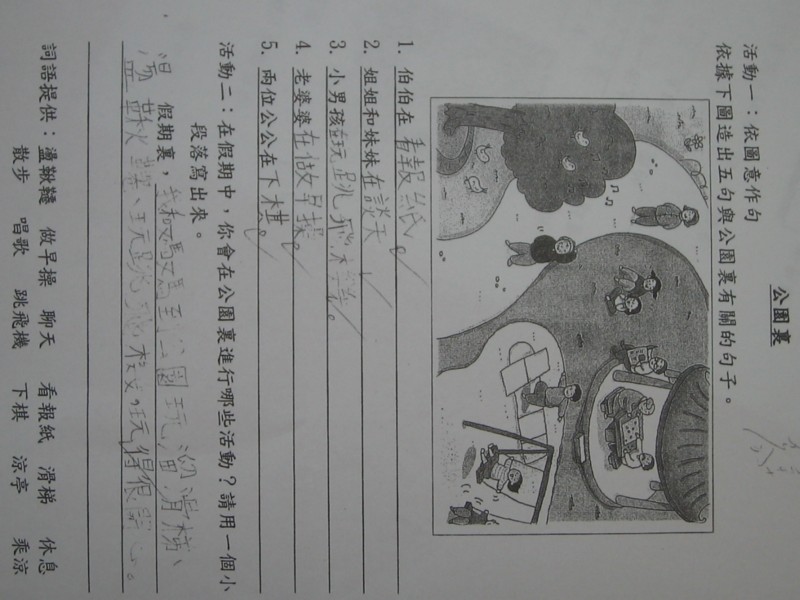 公園裏
活動一：依圖意作句
依據下圖造出五句與公園裏有關的句子。
1. 伯伯在看報紙。
2. 姐姐和妹妹在談天
3. 小男孩在玩跳飛機。
4. 老婆婆在做早操。
5. 兩位公公在下棋。
活動二：在假期中，你會在公園裏進行哪些活動？請用一個小
段落寫出來。
假期裏，我和媽媽到公園玩滑梯、
盪鞦韆、玩跳飛機，玩得很開心。
詞語提供：盪鞦韆 做早操 聊天 看報紙 滑梯 休息
散步 唱歌 跳飛機 下棋 涼亭 乘涼